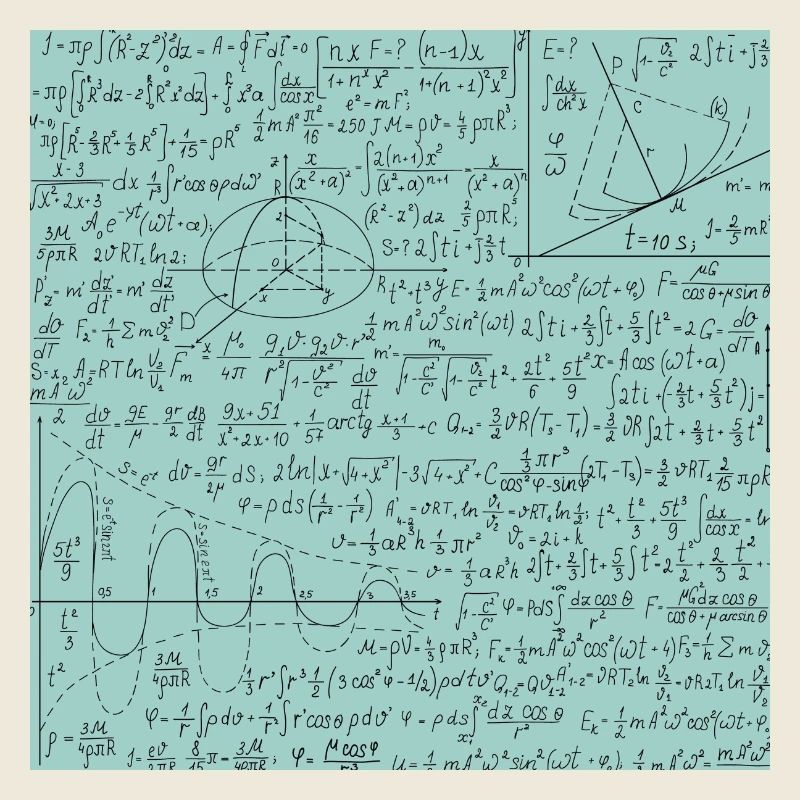 J = πρ∫(R²-z²)²dz = A = ∮F⃗dl⃗ = 0
[n x F=? / 1+nˣx² (n-1)x / 1+(n+1)²x²]
y
E=?
P
√1-v₂/c²
2∫tī+j 2/3
= πρ[∫R⁵dz-2∫R²x²dz]+∫x²a ∫dx/cosx
e²=mF²;
∫dx/ch²x
C
(k)
πρ[R⁵-2/3R⁵+1/5R⁵]+1/15=ρR⁵
1/2mA²π²/16=250J M=ρV=4/5ρπR³;
φ/ω
r
x-3/√x²+2x+3 dx 1/r³∫r'cosθρdω'
z
R
(x/(x²+a)²=∫2(n+1)x²/(x²+a)ⁿ⁺¹=x/(x²+a)ⁿ
m'=
M
A₀e⁻ʸᵗ(ωt+a);
(R²-z²)dz 2/5ρπR⁵;
t=10 S;
J=2/5mR²
3M/5ρπR 2νRT₁ln2;
S=? 2∫tī+j2/3t
0
2
0
x
y
P'z'=m'dz'/dt'=m'dz/dt'
Rt²+t³y E=1/2mA²ω²cos²(ωt+φ₀)
F=μG/cosθ+μsinθ
D
dO/dT F₂=1/h Σmv₂²
1/2mA²ω²sin²(ωt) 2∫ti+2/3∫t+5/3∫t²=2G=dO/dT
A
S=x₂ A=RTln V₂/V₁ Fm
x
=μ₀/4π g₁v·g₂v·r²/r²√1-v²/c² dv/dt
m'=m₀/√1-c²/c'√1-v₂/c² t²+2t²/6+5t²/9 x=Acos(ωt+a)
mA²ω²/2
∫2ti+(-2/3t+5/3t²)j=
dv/dt=gE/μ-gr/2 dB/dt 9x+51/x²+2x+10+1/57arctg x+1/3+C Q₁₊₂=3/2νR(T₃-T₁)=3/2νR∫2t+2/3t+5/3t²
S=e⁻ˣ dv=gr/2μ dS; 2ln|x+√4+x²|-3√4+x²+C 1/3πr³/cos²φ-sinφ(2T₁-T₃)=3/2νRT₁ 2/15πρR
φ=ρds(1/r²-1/r²) A'₄₋₂=νRT₁ln v₁/v₂=νRT₁ln1/2; t²+t²/3+5t³/9 ∫dx/cosx=ln
S=eᵗsin2πt
S=sin2πt
v=1/3aR³h 1/3πr² V₀=2i+k
5t³/9
v=1/3aR³h 2∫t+2/3∫t+5/3∫t²-2t²/2+2/3 t²/2+
0,5 1 1,5 2 2,5 3 3,5
0
t
√1-c²/c' φ=Pds∫dzcosθ/r² F=μGdzcosθ/cosθ+μarcsinθ
t²/3
M=ρV=4/3ρπR³; Fₖ=1/2mA²ω²cos²(ωt+4) F₃=1/h Σmv₂
t² 3M/4ρπR 1/3r'∫r³1/2(3cos²φ-1/2)ρdtv' Q₁₋₂=Qv₁₋₂ A'₁₋₂=νRT₂ln v₂/v₁=νR2T₁ln v₁/v₂
φ=1/r∫ρdv+1/r²∫r'cosθρdv' φ=ρds∫dz cosθ/r² Eₖ=1/2mA²ω²cos²(ωt+φ₀
x₂
x₁
ρ=3M/4ρπR
J=ev/2πR 8/15π=3M/4ρπR; φ=μcosφ/r³ U=1/2mA²ω²sin²(ωt+φ₀); 1/2mA²ω²=mA²ω²